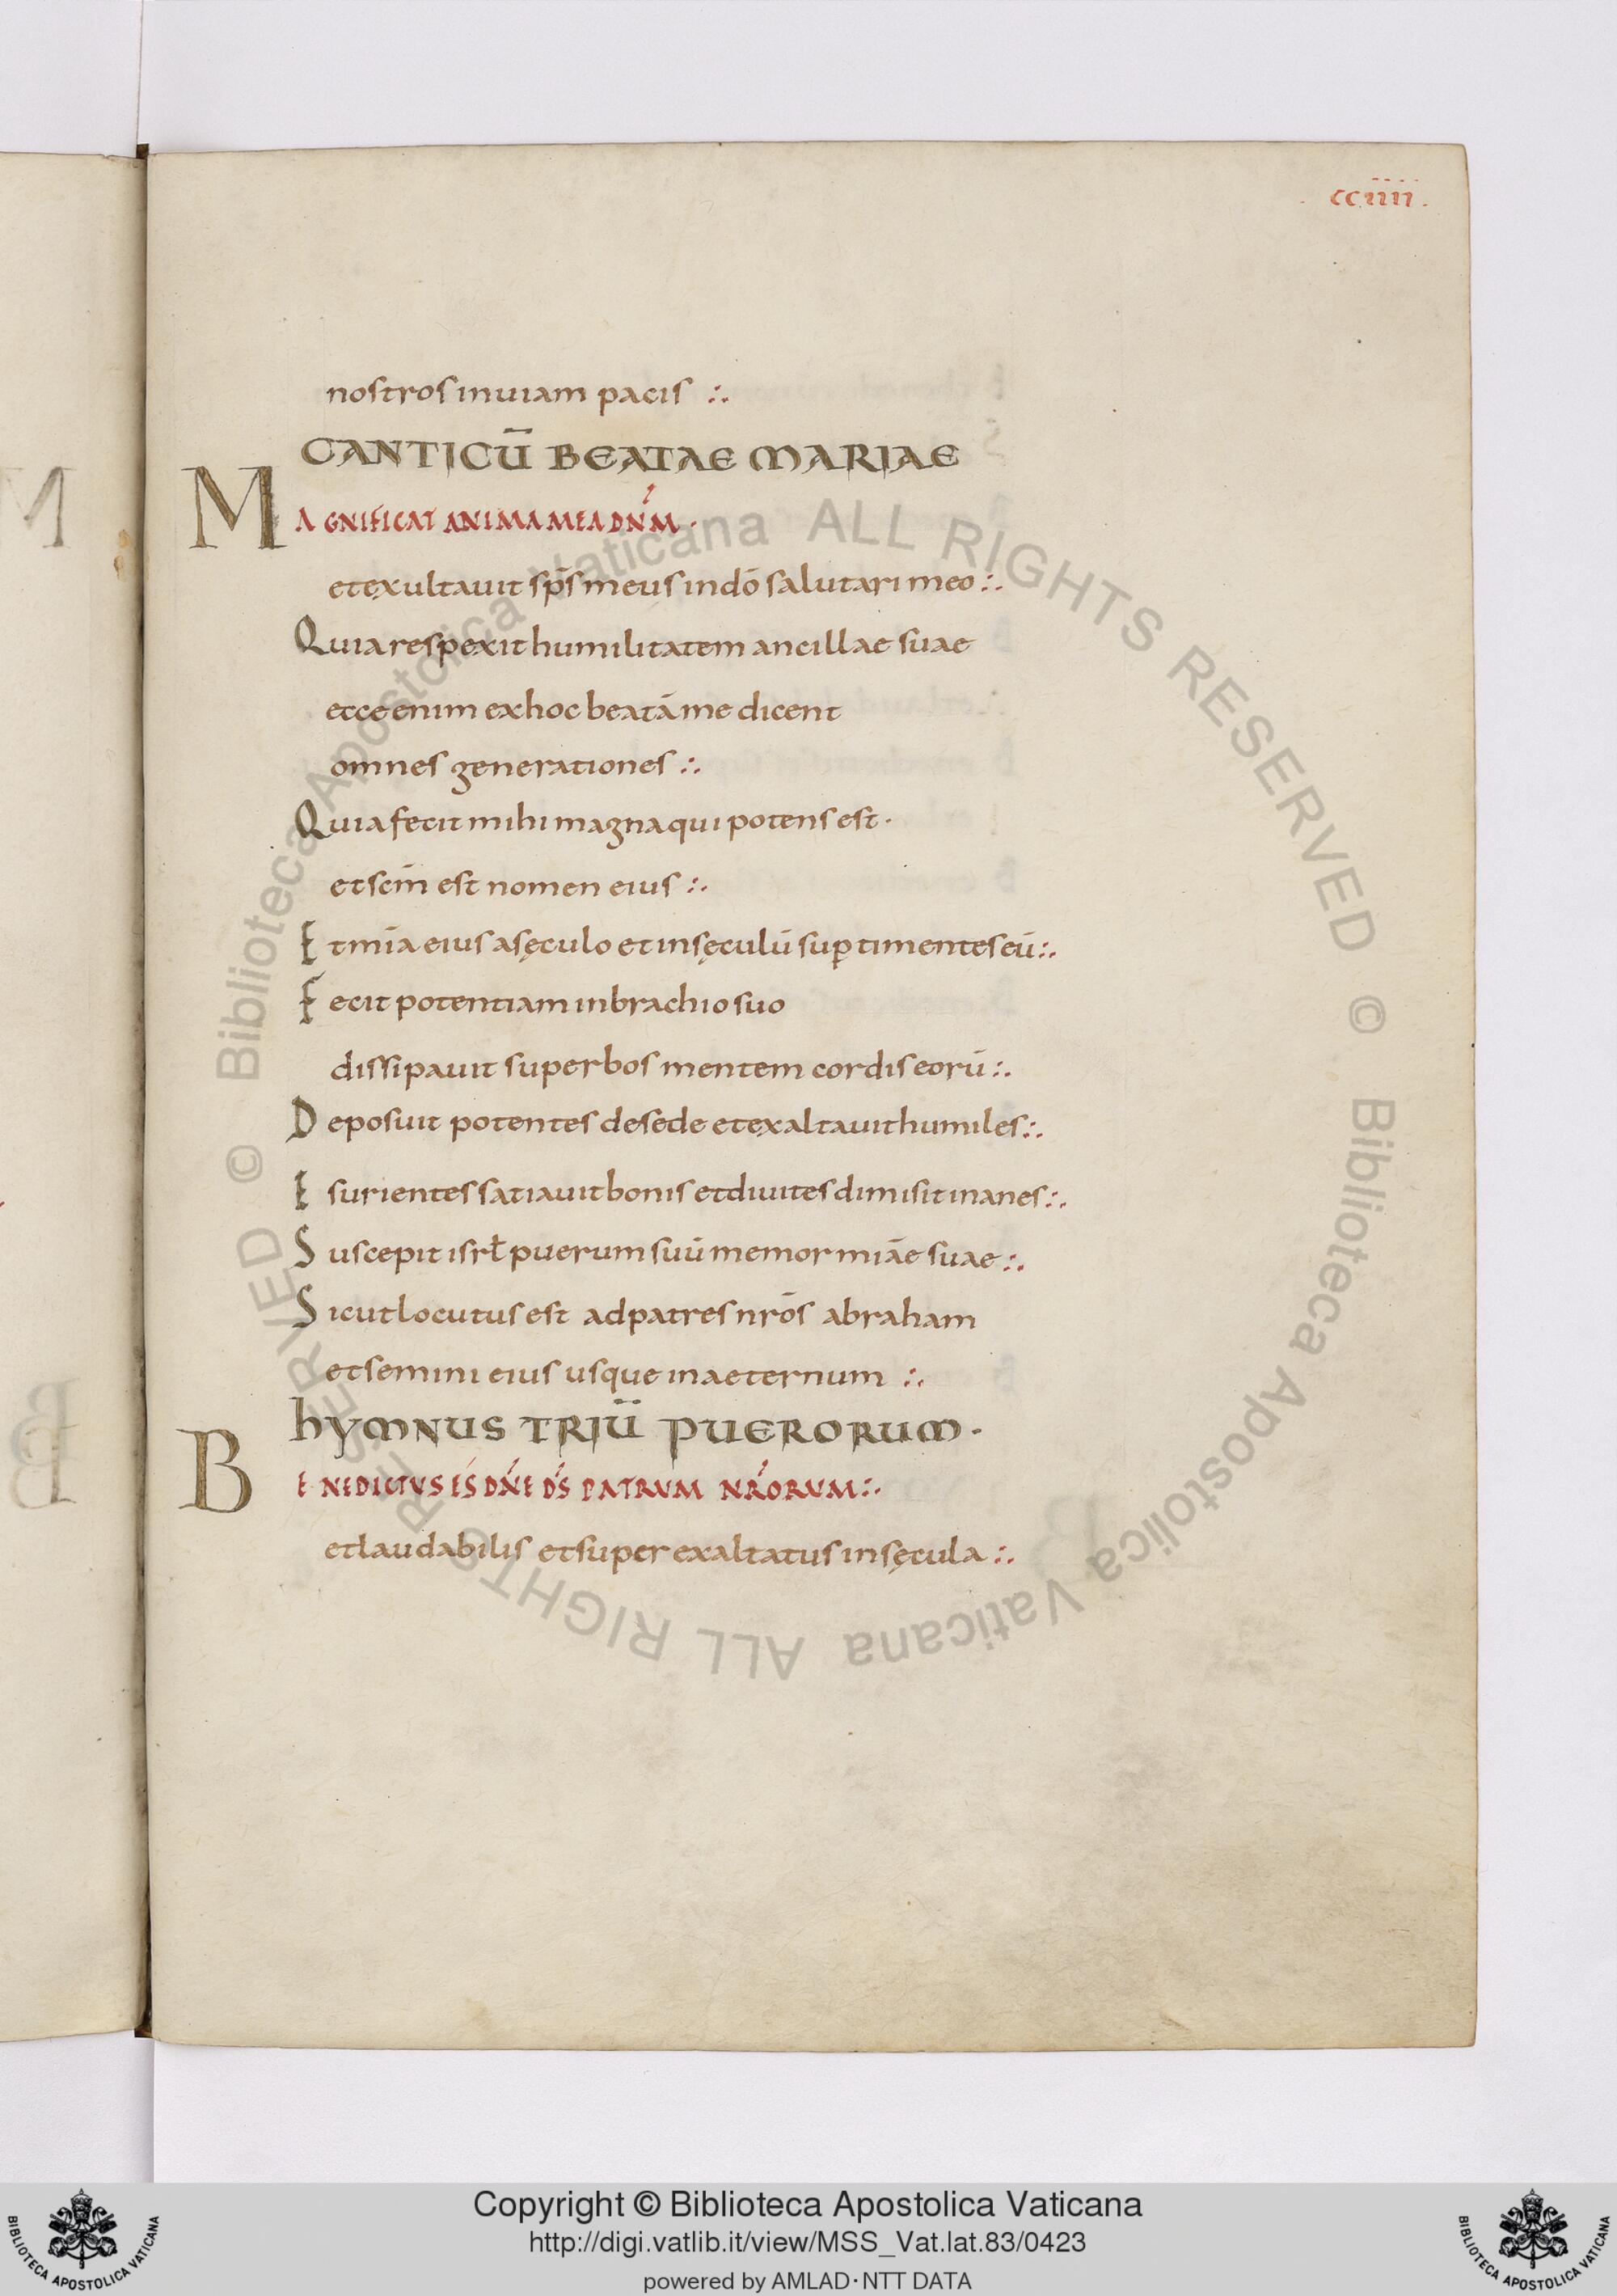 . cciiii .
nostros inuiam pacis :.
CANTICŪ BEATAE MARIAE
MAGNIFICAT ANIMA MEA DNM̄ .
et exultauit sp̄s meus in dō salutari meo :.
Quia respexit humilitatem ancillae suae
etce enim exhoc beatā me dicent
omnes generationes :.
Quia fecit mihi magna qui potens est .
et scm̄ est nomen eius :.
Et mīa eius asęculo et insęculū sup̄ timentes eū :.
Fecit potentiam inbrachio suo
dissipauit superbos mentem cordis eorū :.
Deposuit potentes desede et exaltauit humiles :.
Esurientes satiauit bonis et diuites dimisit inanes :.
Suscepit isrł puerum suū memor miāe suae :.
Sicut locutus est ad patres nrōs abraham
et semini eius usque inaeternum :.
hYMNUS TRIŪ PUERORUM .
BENEDICTUS ES DN̄E DS̄ PATRUM NR̄ORUM :.
et laudabilis et super exaltatus insęcula :.
© Biblioteca Apostolica Vaticana ALL RIGHTS RESERVED © Biblioteca Apostolica Vaticana ALL RIGHTS RESERVED
Copyright © Biblioteca Apostolica Vaticana
http://digi.vatlib.it/view/MSS_Vat.lat.83/0423
powered by AMLAD · NTT DATA
BIBLIOTECA APOSTOLICA VATICANA
BIBLIOTECA APOSTOLICA VATICANA